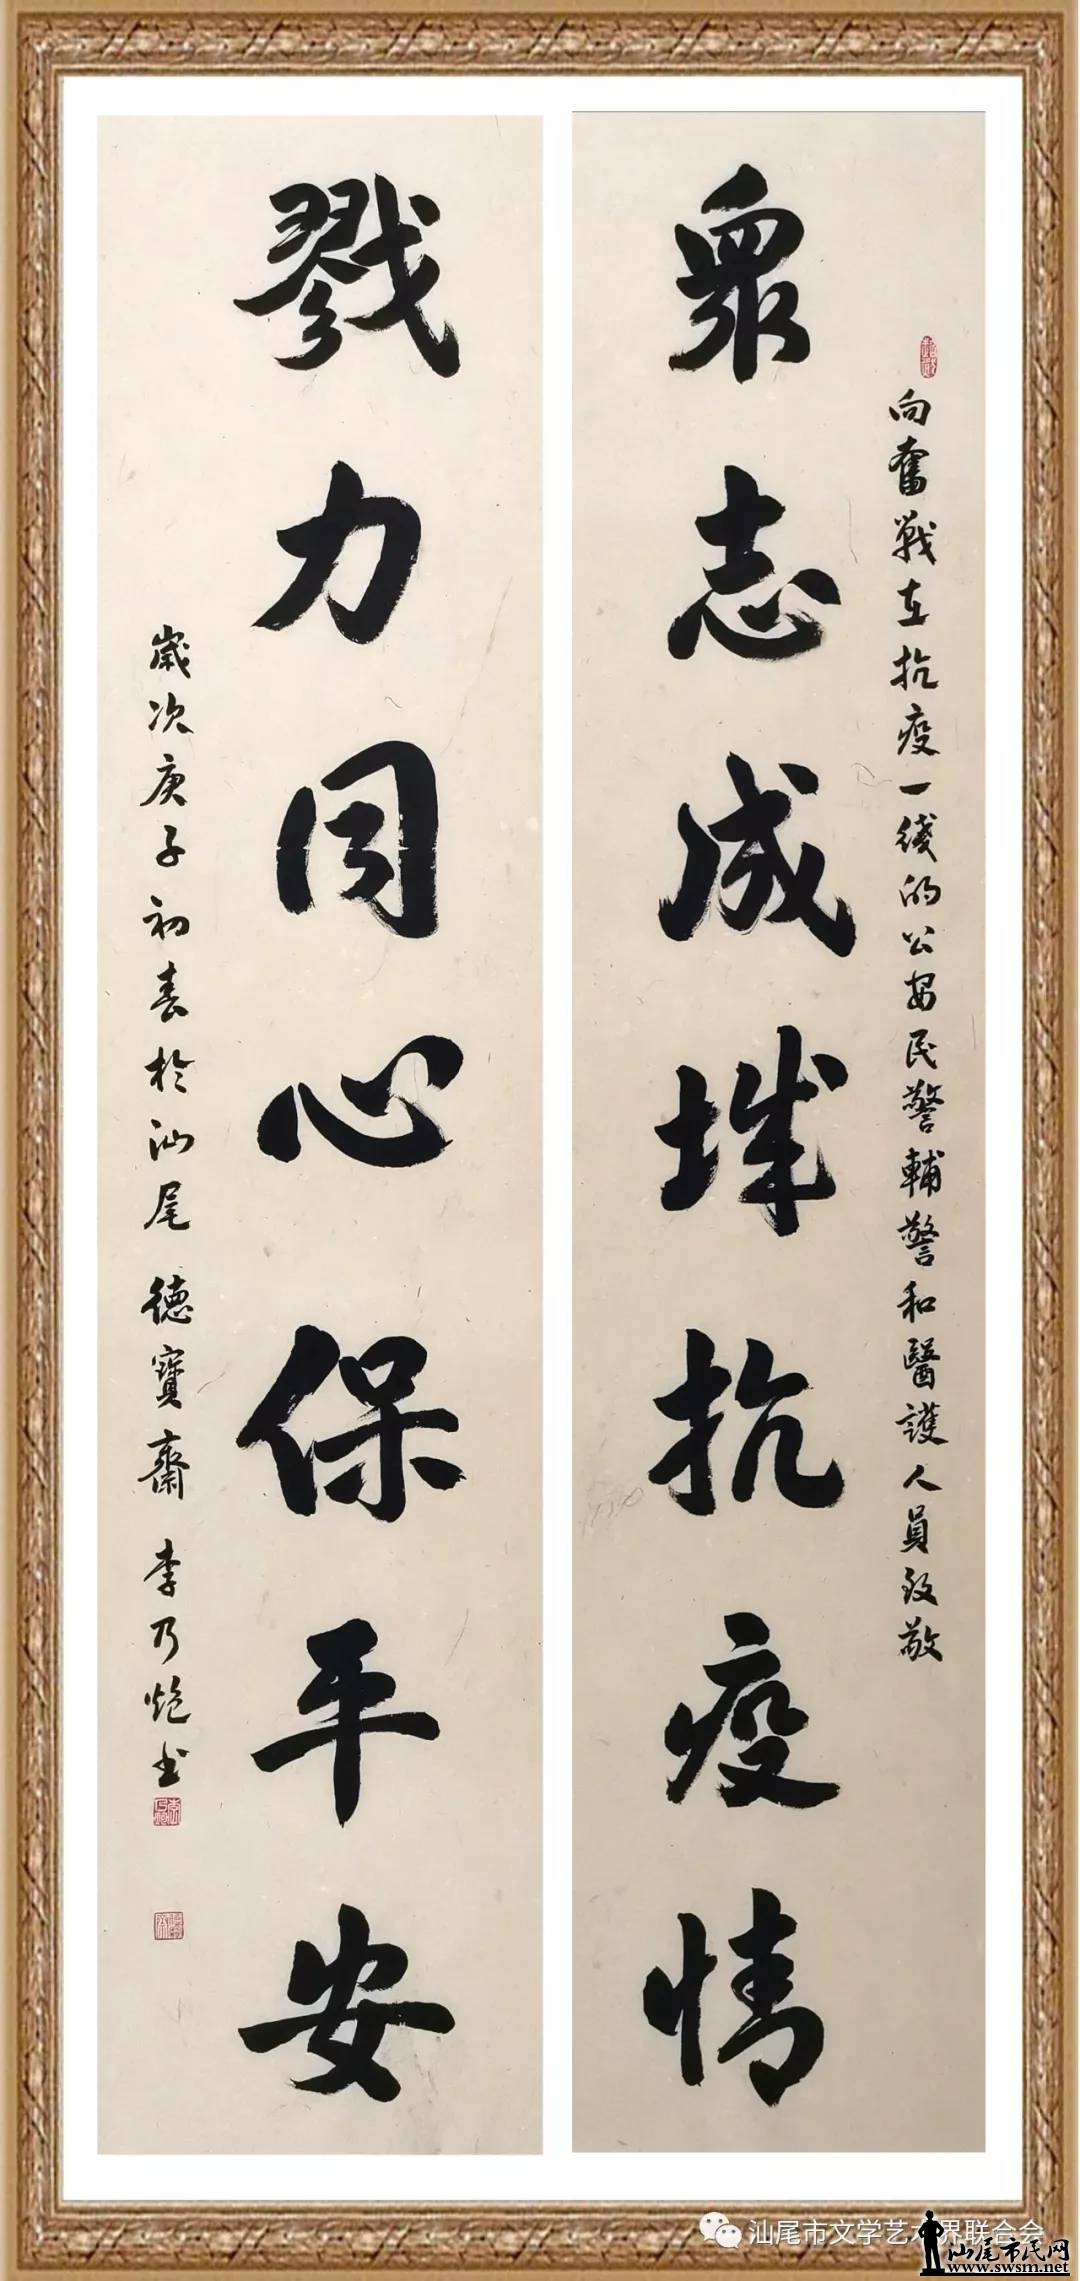 向奮戰在抗疫一綫的公安民警輔警和醫護人員致敬
眾志成城抗疫情
戮力同心保平安
歲次庚子初春於汕尾 德寶齋 李乃炮书
汕尾市文学艺术界联合会
汕尾市民网
www.swsm.net